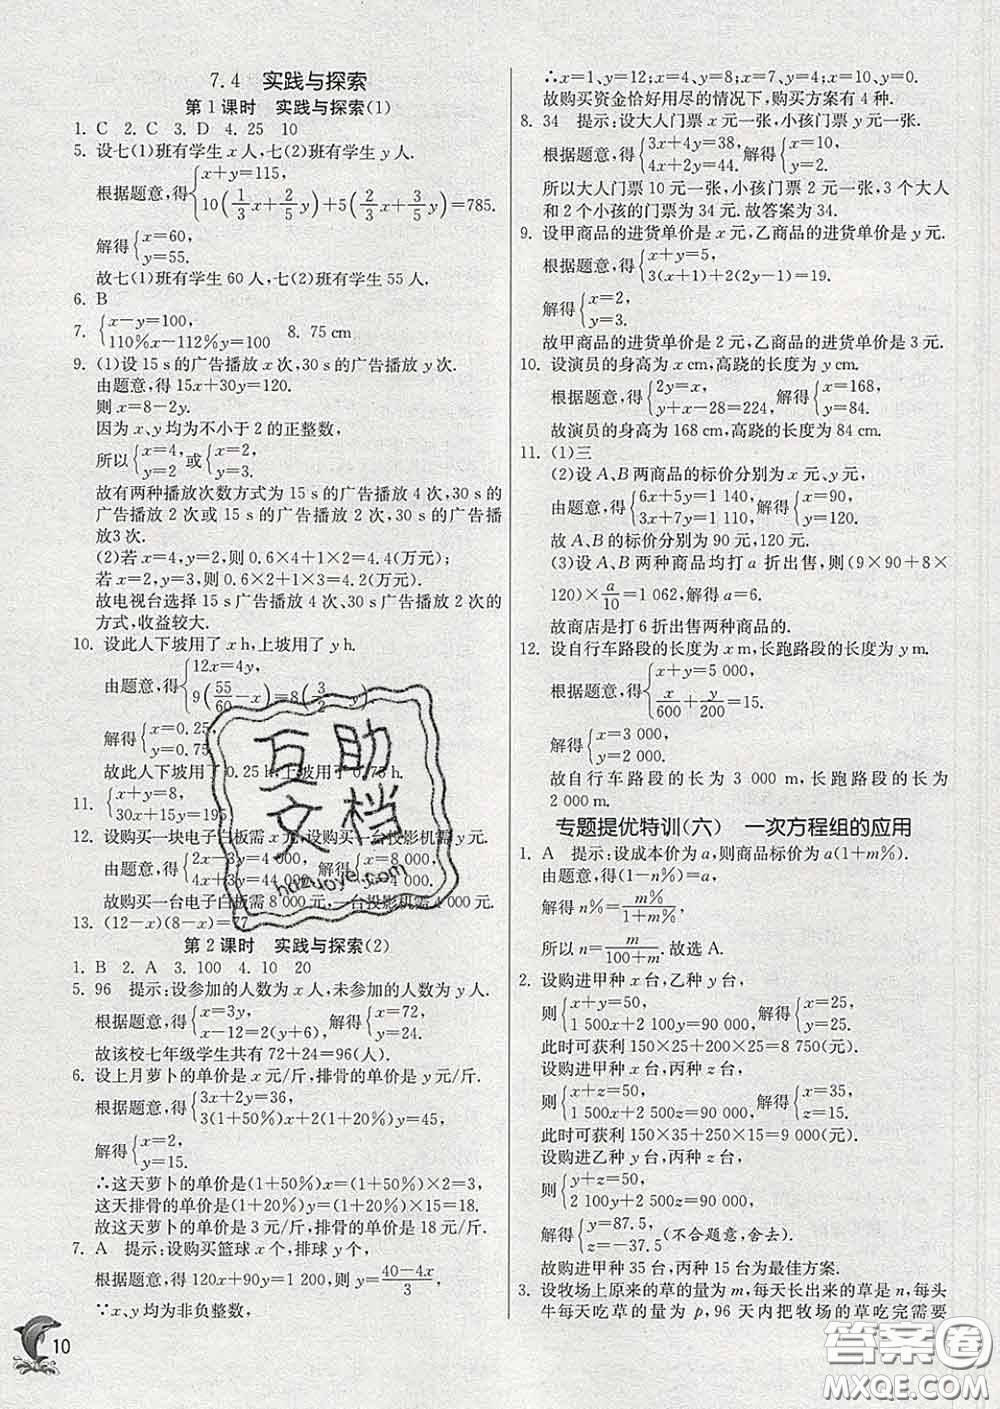 7.4 实践与探索
第1课时 实践与探索(1)
1. C 2. C 3. D 4. 25 10
5. 设七(1)班有学生 x 人,七(2)班有学生 y 人.
根据题意,得{x+y=115,
10(1/3x+2/5y)+5(2/3x+3/5y)=785.
解得{x=60,
y=55.
故七(1)班有学生 60 人,七(2)班有学生 55 人.
6. B
7. {x-y=100,
110%x-112%y=100 8. 75 cm
9. (1)设 15 s 的广告播放 x 次,30 s 的广告播放 y 次.
由题意,得 15x+30y=120.
则 x=8-2y.
因为 x、y 均为不小于 2 的正整数,
所以{x=4, 或{x=2,
y=2 y=3.
故有两种播放次数方式为 15 s 的广告播放 4 次,30 s 的
广告播放 2 次或 15 s 的广告播放 2 次,30 s 的广告播
放3 次.
(2)若 x=4,y=2,则 0.6×4+1×2=4.4(万元);
若 x=2,y=3,则 0.6×2+1×3=4.2(万元).
故电视台选择 15 s 广告播放 4 次、30 s 广告播放 2 次的
方式,收益较大.
10. 设此人下坡用了 x h,上坡用了 y h.
由题意,得{12x=4y,
9(55/60-x)=8(3/2-y)
解得{x=0.25,
y=0.75
故此人下坡用了 0.25 h,上坡用了 0.75 h.
11. {x+y=8,
30x+15y=195
12. 设购买一块电子白板需 x 元,设购买一台投影机需 y 元.
根据题意,得{2x-3y=4 000, 解得{x=8 000,
4x+3y=44 000
故购买一台电子白板需 8 000 元,一台投影机需 4 000 元.
13. (12-x)(8-x)=77
第2课时 实践与探索(2)
1. B 2. A 3. 100 4. 10 20
5. 96 提示:设参加的人数为 x 人,未参加的人数为 y 人.
根据题意,得{x=3y, 解得{x=72,
x-12=2(y+6), y=24.
故该校七年级学生共有 72+24=96(人).
6. 设上月萝卜的单价是 x 元/斤,排骨的单价是 y 元/斤.
根据题意,得{3x+2y=36,
3(1+50%)x+2(1+20%)y=45,
解得{x=2,
y=15.
∴这天萝卜的单价是(1+50%)x=(1+50%)×2=3,
这天排骨的单价是(1+20%)y=(1+20%)×15=18.
故这天萝卜的单价是 3 元/斤,排骨的单价是 18 元/斤.
7. A 提示:设购买篮球 x 个,排球 y 个,
根据题意,得 120x+90y=1 200,则 y=(40-4x)/3
∵x、y 均为非负整数,
∴x=1、y=12;x=4、y=8;x=7、y=4;x=10、y=0.
故购买资金恰好用尽的情况下,购买方案有 4 种.
8. 34 提示:设大人门票 x 元一张,小孩门票 y 元一张.
根据题意,得{3x+4y=38, 解得{x=10,
4x+2y=44, y=2.
所以大人门票 10 元一张,小孩门票 2 元一张,3 个大人
和 2 个小孩的门票为 34 元.故答案为 34.
9. 设甲商品的进货单价是 x 元,乙商品的进货单价是 y 元.
根据题意,得{x+y=5,
3(x+1)+2(2y-1)=19.
解得{x=2,
y=3.
故甲商品的进货单价是 2 元,乙商品的进货单价是 3 元.
10. 设演员的身高为 x cm,高跷的长度为 y cm.
根据题意,得{2y=x, 解得{x=168,
y+x-28=224, y=84.
故演员的身高为 168 cm,高跷的长度为 84 cm.
11. (1)三
(2)设 A、B 两商品的标价分别为 x 元、y 元,
由题意,得{6x+5y=1 140, 解得{x=90,
3x+7y=1 110, y=120.
故 A、B 的标价分别为 90 元,120 元.
(3)设 A、B 两种商品均打 a 折出售,则 (9×90+8×
120)×a/10=1 062,解得 a=6.
故商店是打 6 折出售两种商品的.
12. 设自行车路段的长度为 x m,长跑路段的长度为 y m.
根据题意,得{x+y=5 000,
x/600+y/200=15.
解得{x=3 000,
y=2 000.
故自行车路段的长为 3 000 m,长跑路段的长为
2 000 m.
专题提优特训(六) 一次方程组的应用
1. A 提示:设成本价为 a,则商品标价为 a(1+m%).
由题意,得(1-n%)=a,
解得 n%=m%/(1+m%),
所以 n=m/(100+m).故选 A.
2. 设购进甲种 x 台,乙种 y 台,
则{x+y=50, 解得{x=25,
1 500x+2 100y=90 000, y=25.
此时可获利 150×25+200×25=8 750(元).
设购进甲种 x 台,丙种 z 台,
则{x+z=50, 解得{x=35,
1 500x+2 500z=90 000, z=15.
此时可获利 150×35+250×15=9 000(元).
设购进乙种 y 台,丙种 z 台,
则{y+z=50,
2 100y+2 500z=90 000,
解得{y=87.5, (不合题意,舍去)
z=-37.5
故购进甲种 35 台,丙种 15 台为最佳方案.
3. 设牧场上原来的草的量为 m,每天长出来的草是 n,每头
牛每天吃草的量为 p,96 天内把牧场的草吃完需要
10
互助
文档
hazuoye.com
答案圈
MXQE.COM